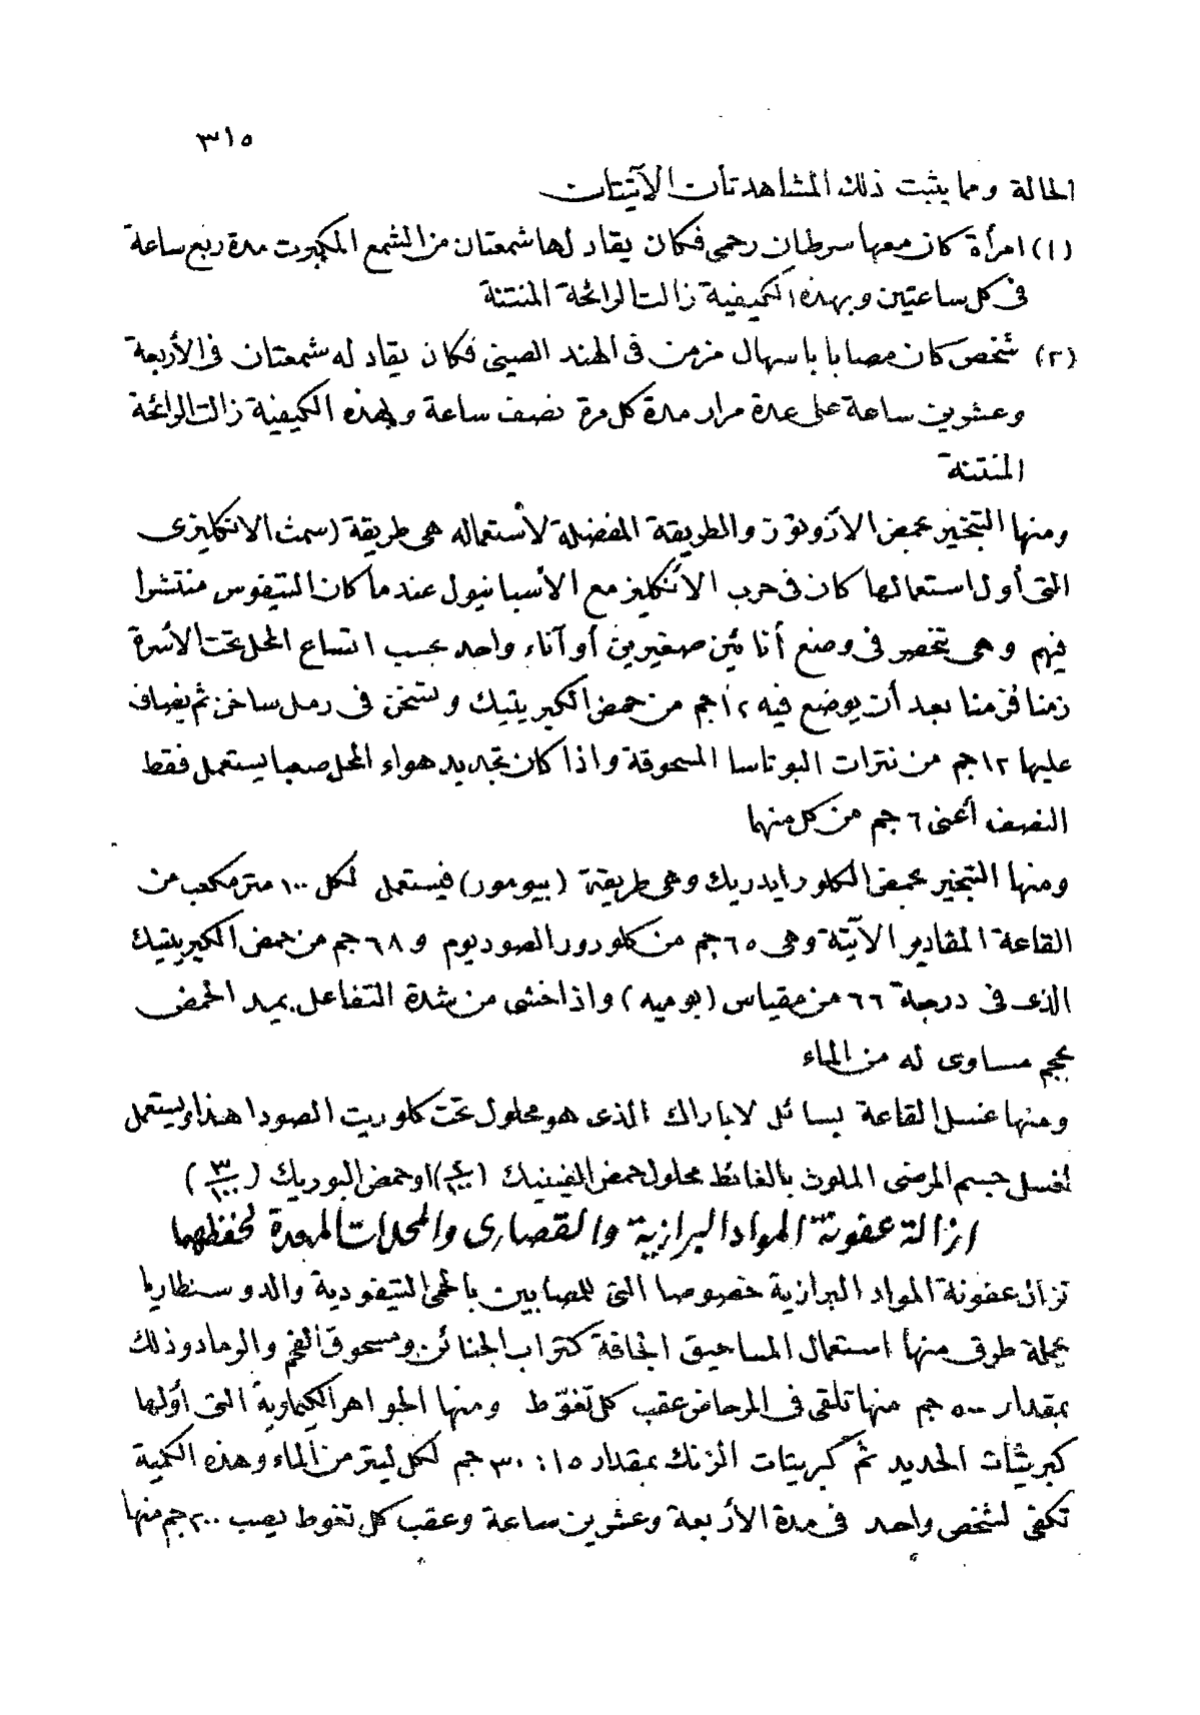 ٣١٥
الحالة ومما يثبت ذلك المشاهدتان الآتيتان
(١) امرأة كان معها سرطان رحمى فكان يقاد لها شمعتان من الشمع المكبرت مدة ربع ساعة
فى كل ساعتين وبهذه الكيفية زالت الرائحة المنتنة
(٢) شخص كان مصابا باسهال مزمن فى الهند الصينى فكان يقاد له شمعتان فى الأربعة
وعشرين ساعة على عدة مرار مدة كل مرة نصف ساعة وبهذه الكيفية زالت الرائحة
المنتنة
ومنها التبخير بحمض الأزوتوز والطريقة المفضلة لأستعماله هى طريقة (سمث الانكليزى
التى أول استعمالها كان فى حرب الأنكليز مع الأسبانيول عندما كان التيفوس منتشرا
فيهم وهى تنحصر فى وضع أنائين صغيرين أو آناء واحد بحسب اتساع المحل تحت الأسرة
زمنا فزمنا بعد أن يوضع فيه ١٢ جم من حمض الكبريتيك وتسخن فى رمل ساخن ثم يضاف
عليها ١٢ جم من نترات البوتاسا المسحوقة واذا كان تجديد هواء المحل صعبا يستعمل فقط
النصف أعنى ٦ جم من كل منهما
ومنها التبخير بحمض الكلورايدريك وهى طريقة (بيومور) فيستعمل لكل ١٠٠ متر مكعب من
القاعة المقادير الآتية وهى ٦٥ جم من كلورور الصوديوم و ٦٨ جم من حمض الكبريتيك
الذى فى درجة ٦٦ من مقياس (بوميه) واذا خشى من شدة التفاعل يمد الحمض
بحجم مساوى له من الماء
ومنها غسل القاعة بسائل لاباراك الذى هو محلول تحت كلوريت الصودا هذا ويستعمل
لغسل جسم المرضى الملوث بالغائط محلول حمض الفينيك (٤/١٠٠) او حمض البوريك (٣/١٠٠)
ازالة عفونة المواد البرازية والقصارى والمحلات المعدة لحفظها
تزال عفونة المواد البرازية خصوصا التى للمصابين بالحمى التيفودية والدوسنطاريا
بجملة طرق منها استعمال المساحيق الجافة كتراب الجنائن ومسحوق الفحم والرماد وذلك
بمقدار ٥٠٠ جم منها تلقى فى المرحاض عقب كل تغوّط ومنها الجواهر الكيماوية التى أوّلها
كبريتات الحديد ثم كبريتات الزنك بمقدار ١٥ : ٣٠ جم لكل ليتر من الماء وهذه الكمية
تكفى لشخص واحد فى مدة الأربعة وعشرين ساعة وعقب كل تغوط يصب ٢٠٠ جم منها